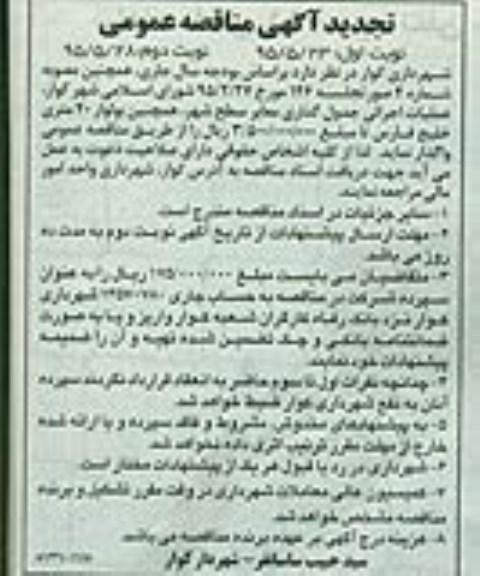 تجدید آگهی مناقصه عمومی
نوبت اول: ۹۵/۵/۲۳ نوبت دوم: ۹۵/۵/۲۸
شهرداری کوار در نظر دارد براساس بودجه سال جاری، همچنین مصوبه
شماره ۴ صورتجلسه ۱۴۶ مورخ ۹۵/۲/۲۷ شورای اسلامی شهر کوار،
عملیات اجرائی جدول گذاری معابر سطح شهر، همچنین بولوار ۲۰ متری
خلیج فارس تا مبلغ ۳/۵۰۰/۰۰۰/۰۰۰ ریال را از طریق مناقصه عمومی
واگذار نماید. لذا از کلیه اشخاص حقوقی دارای صلاحیت دعوت به عمل
می آید جهت دریافت اسناد مناقصه به آدرس کوار، شهرداری واحد امور
مالی مراجعه نمایند.
۱- سایر جزئیات در اسناد مناقصه مندرج است.
۲- مهلت ارسال پیشنهادات از تاریخ آگهی نوبت دوم به مدت ده
روز می باشد.
۳- متقاضیان می بایست مبلغ ۱۷۵/۰۰۰/۰۰۰ ریال را به عنوان
سپرده شرکت در مناقصه به حساب جاری شهرداری
کوار نزد بانک رفاه کارگران شعبه کوار واریز و یا به صورت
ضمانتنامه بانکی و چک تضمین شده تهیه و آن را ضمیمه
پیشنهادات خود نمایند.
۴- چنانچه نفرات اول تا سوم حاضر به انعقاد قرارداد نگردند سپرده
آنان به نفع شهرداری کوار ضبط خواهد شد.
۵- به پیشنهادهای مخدوش، مشروط و فاقد سپرده و یا ارائه شده
خارج از مهلت مقرر ترتیب اثری داده نخواهد شد.
۶- شهرداری در رد یا قبول هر یک از پیشنهادات مختار است.
۷- کمیسیون عالی معاملات شهرداری در وقت مقرر تشکیل و برنده
مناقصه مشخص خواهد شد.
۸- هزینه درج آگهی بر عهده برنده مناقصه می باشد.
سید حبیب ساسانفر - شهردار کوار